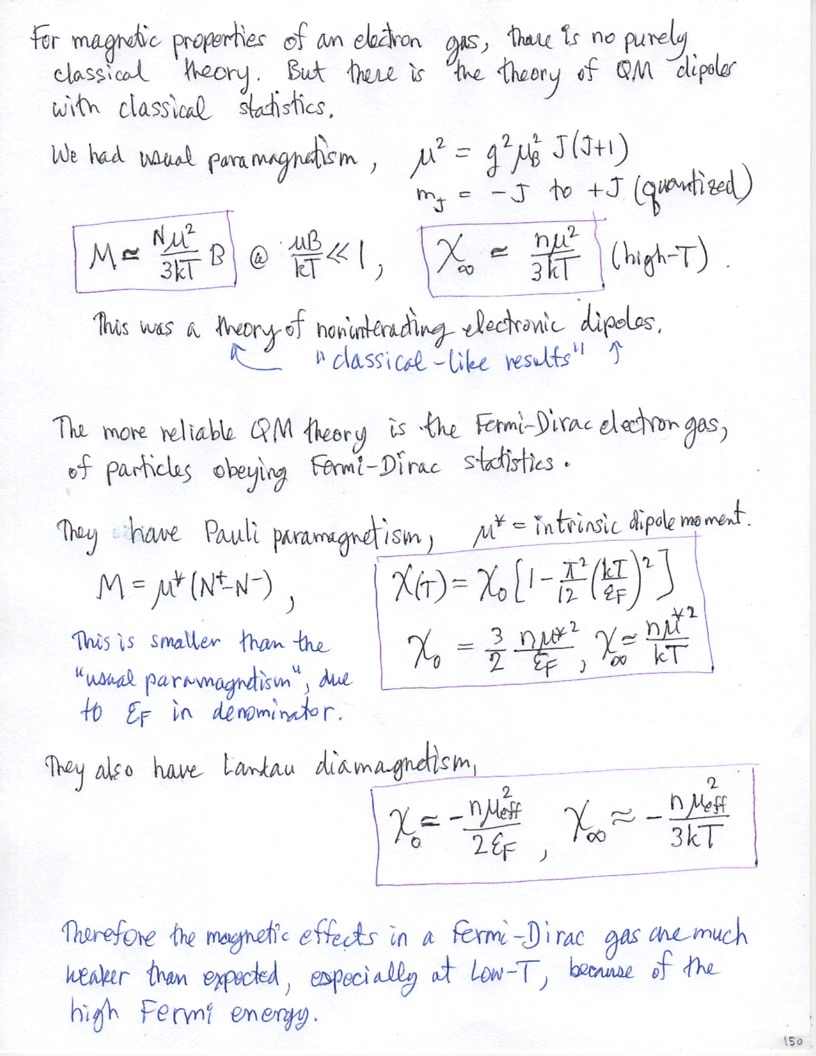 For magnetic properties of an electron gas, there is no purely
classical theory. But there is the theory of QM dipoles
with classical statistics.
We had usual paramagnetism, μ² = g²μ_B² J(J+1)
m_J = -J to +J (quantized)
M ≃ Nμ²/3kT B @ μB/kT ≪ 1, χ_∞ ≃ nμ²/3kT (high-T).
This was a theory of noninteracting electronic dipoles.
"classical-like results"
The more reliable QM theory is the Fermi-Dirac electron gas,
of particles obeying Fermi-Dirac statistics.
They have Pauli paramagnetism, μ* = intrinsic dipole moment.
M = μ*(N⁺-N⁻), χ(T) = χ₀[1 - π²/12 (kT/ε_F)²]
χ₀ = 3/2 nμ*²/ε_F, χ_∞ ≃ nμ*²/kT
This is smaller than the
"usual paramagnetism", due
to ε_F in denominator.
They also have Landau diamagnetism,
χ₀ ≃ - nμ_eff²/2ε_F, χ_∞ ≈ - nμ_eff²/3kT
Therefore the magnetic effects in a Fermi-Dirac gas are much
weaker than expected, especially at Low-T, because of the
high Fermi energy.
150